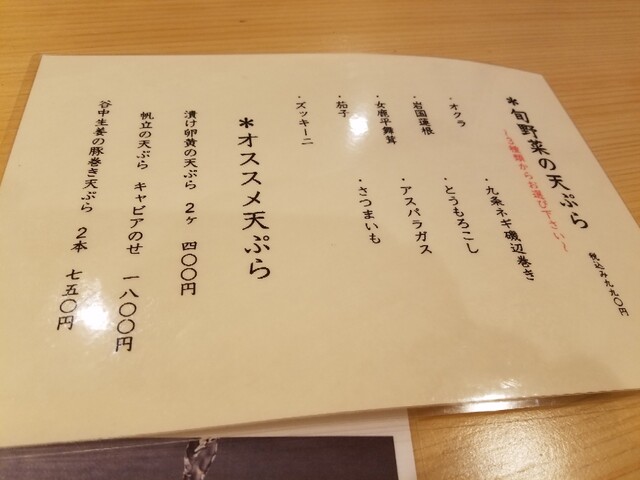 *旬野菜の天ぷら
税込み九九〇円
~3種類からお選び下さい~
・オクラ
・九条ネギ磯辺巻き
・岩国蓮根
・とうもろこし
・女鹿平舞茸
・アスパラガス
・茄子
・さつまいも
・ズッキーニ
*オススメ天ぷら
漬け卵黄の天ぷら 2ヶ 四〇〇円
帆立の天ぷら キャビアのせ 一八〇〇円
谷中生姜の豚巻き天ぷら 2本 七五〇円